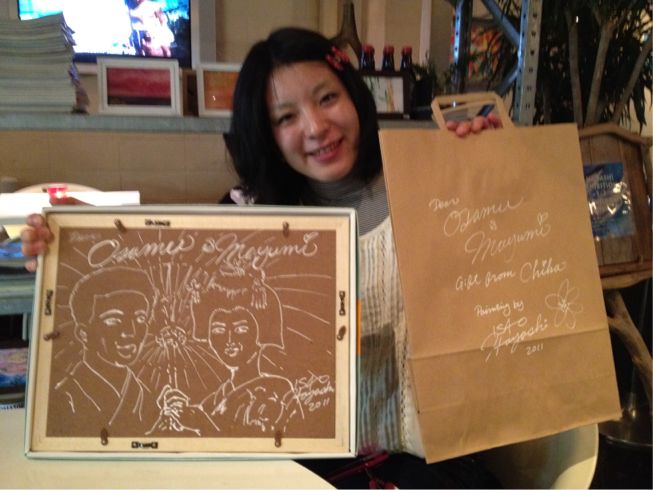 Dear
Osamu & Mayumi
ISAO
Hayashi
2011
Dear
Osamu
&
Mayumi
Gift from Chika
Painting by
ISAO
Hayashi
2011